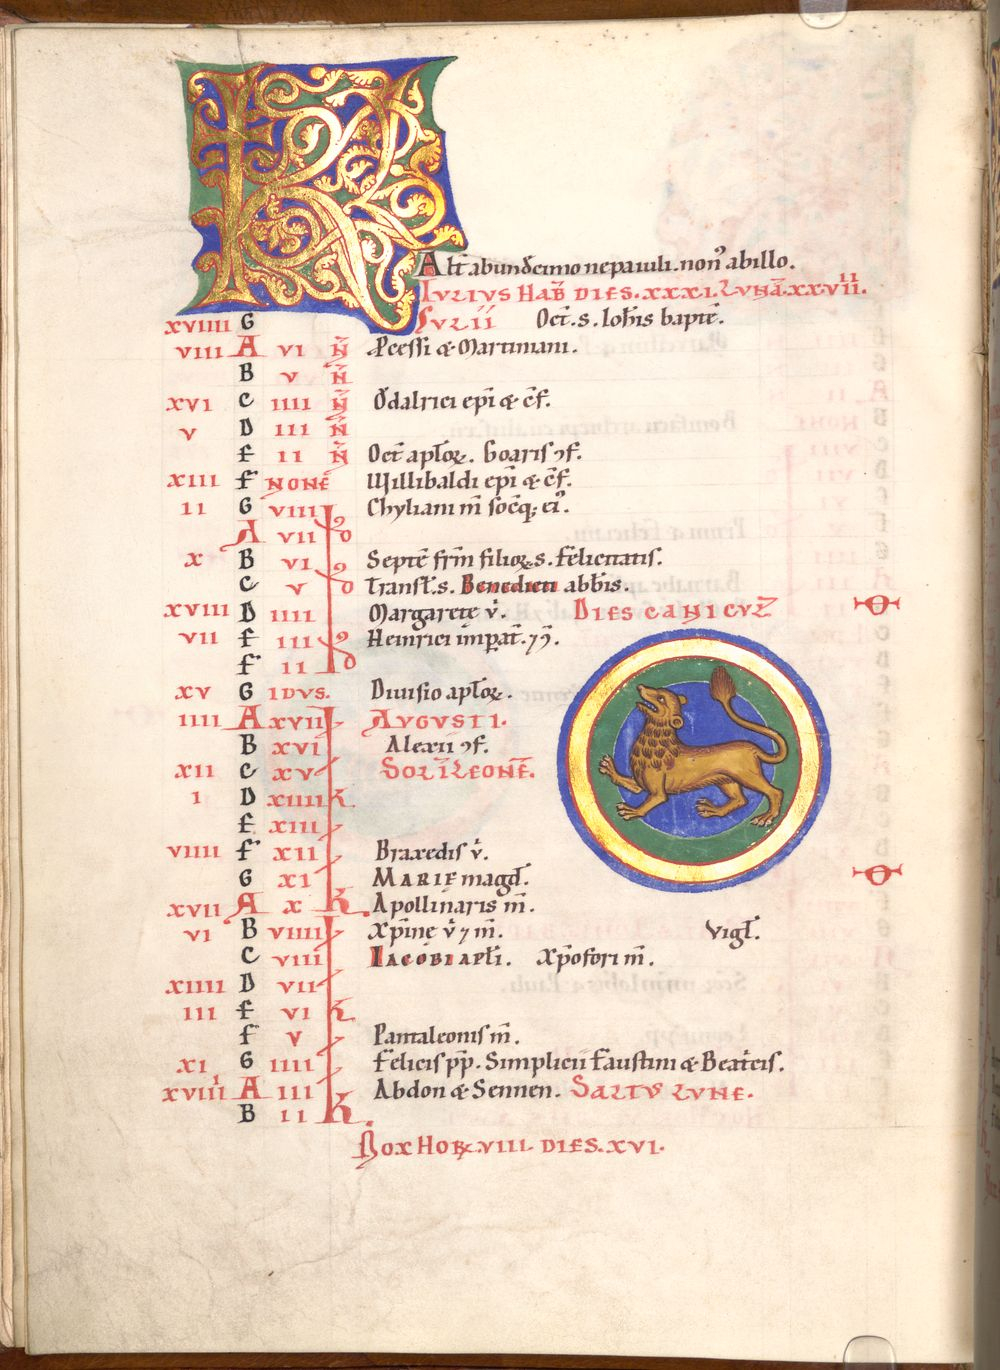 KL Alt̄ abundeimo nepaiuli. non' abillo.
IULIUS HAB̄ DIES. XXXI. LUNĀ. XXVII.
XVIIII G IULII Oct̄. s. Ioh̄is bapt̄e.
VIII A VI N̄ Pcessi & Martiniani.
B V N̄
XVI C IIII N̄ Ódalrici epi & c̄f.
V D III N̄
E II N̄ Oct̄ apl̄oꝝ. Goaris ꝯf.
XIII F NONĒ Willibaldi epi & c̄f.
II G VIII ID Chyliani m̄ socq; ei'.
A VII
X B VI ID Septē frm̄ filioꝝ s. felicitatis.
C V Transl̄. s. Benedicti abb̄is.
XVIII D IIII Margarete v̄. DIES CANICUL̄
VII E III ID Heinrici imp̄at̄. ⁊ ꝯ̄.
F II
XV G IDUS. Diuisio apl̄oꝝ.
IIII A XVII AUGUSTI.
B XVI Alexii ꝯf.
XII C XV SOL Ī LEONĒ.
I D XIIII K
E XIII
VIIII F XII Braxedis v̄.
G XI MARIE magd̄.
XVII A X K. Apollinaris m̄.
VI B VIIII Xp̄ine v̄ ⁊ m̄. Vigl̄.
C VIII IACOBI apl̄i. Xp̄ofori m̄.
XIIII D VII
III E VI K
F V Pantaleonis m̄.
XI G IIII Felicis pp̄. Simplicii Faustini & Beat̄cis.
XVIIII A III Abdon & Sennen. SALTUS LUNE.
B II K.
NOX HOR. VIII. DIES. XVI.